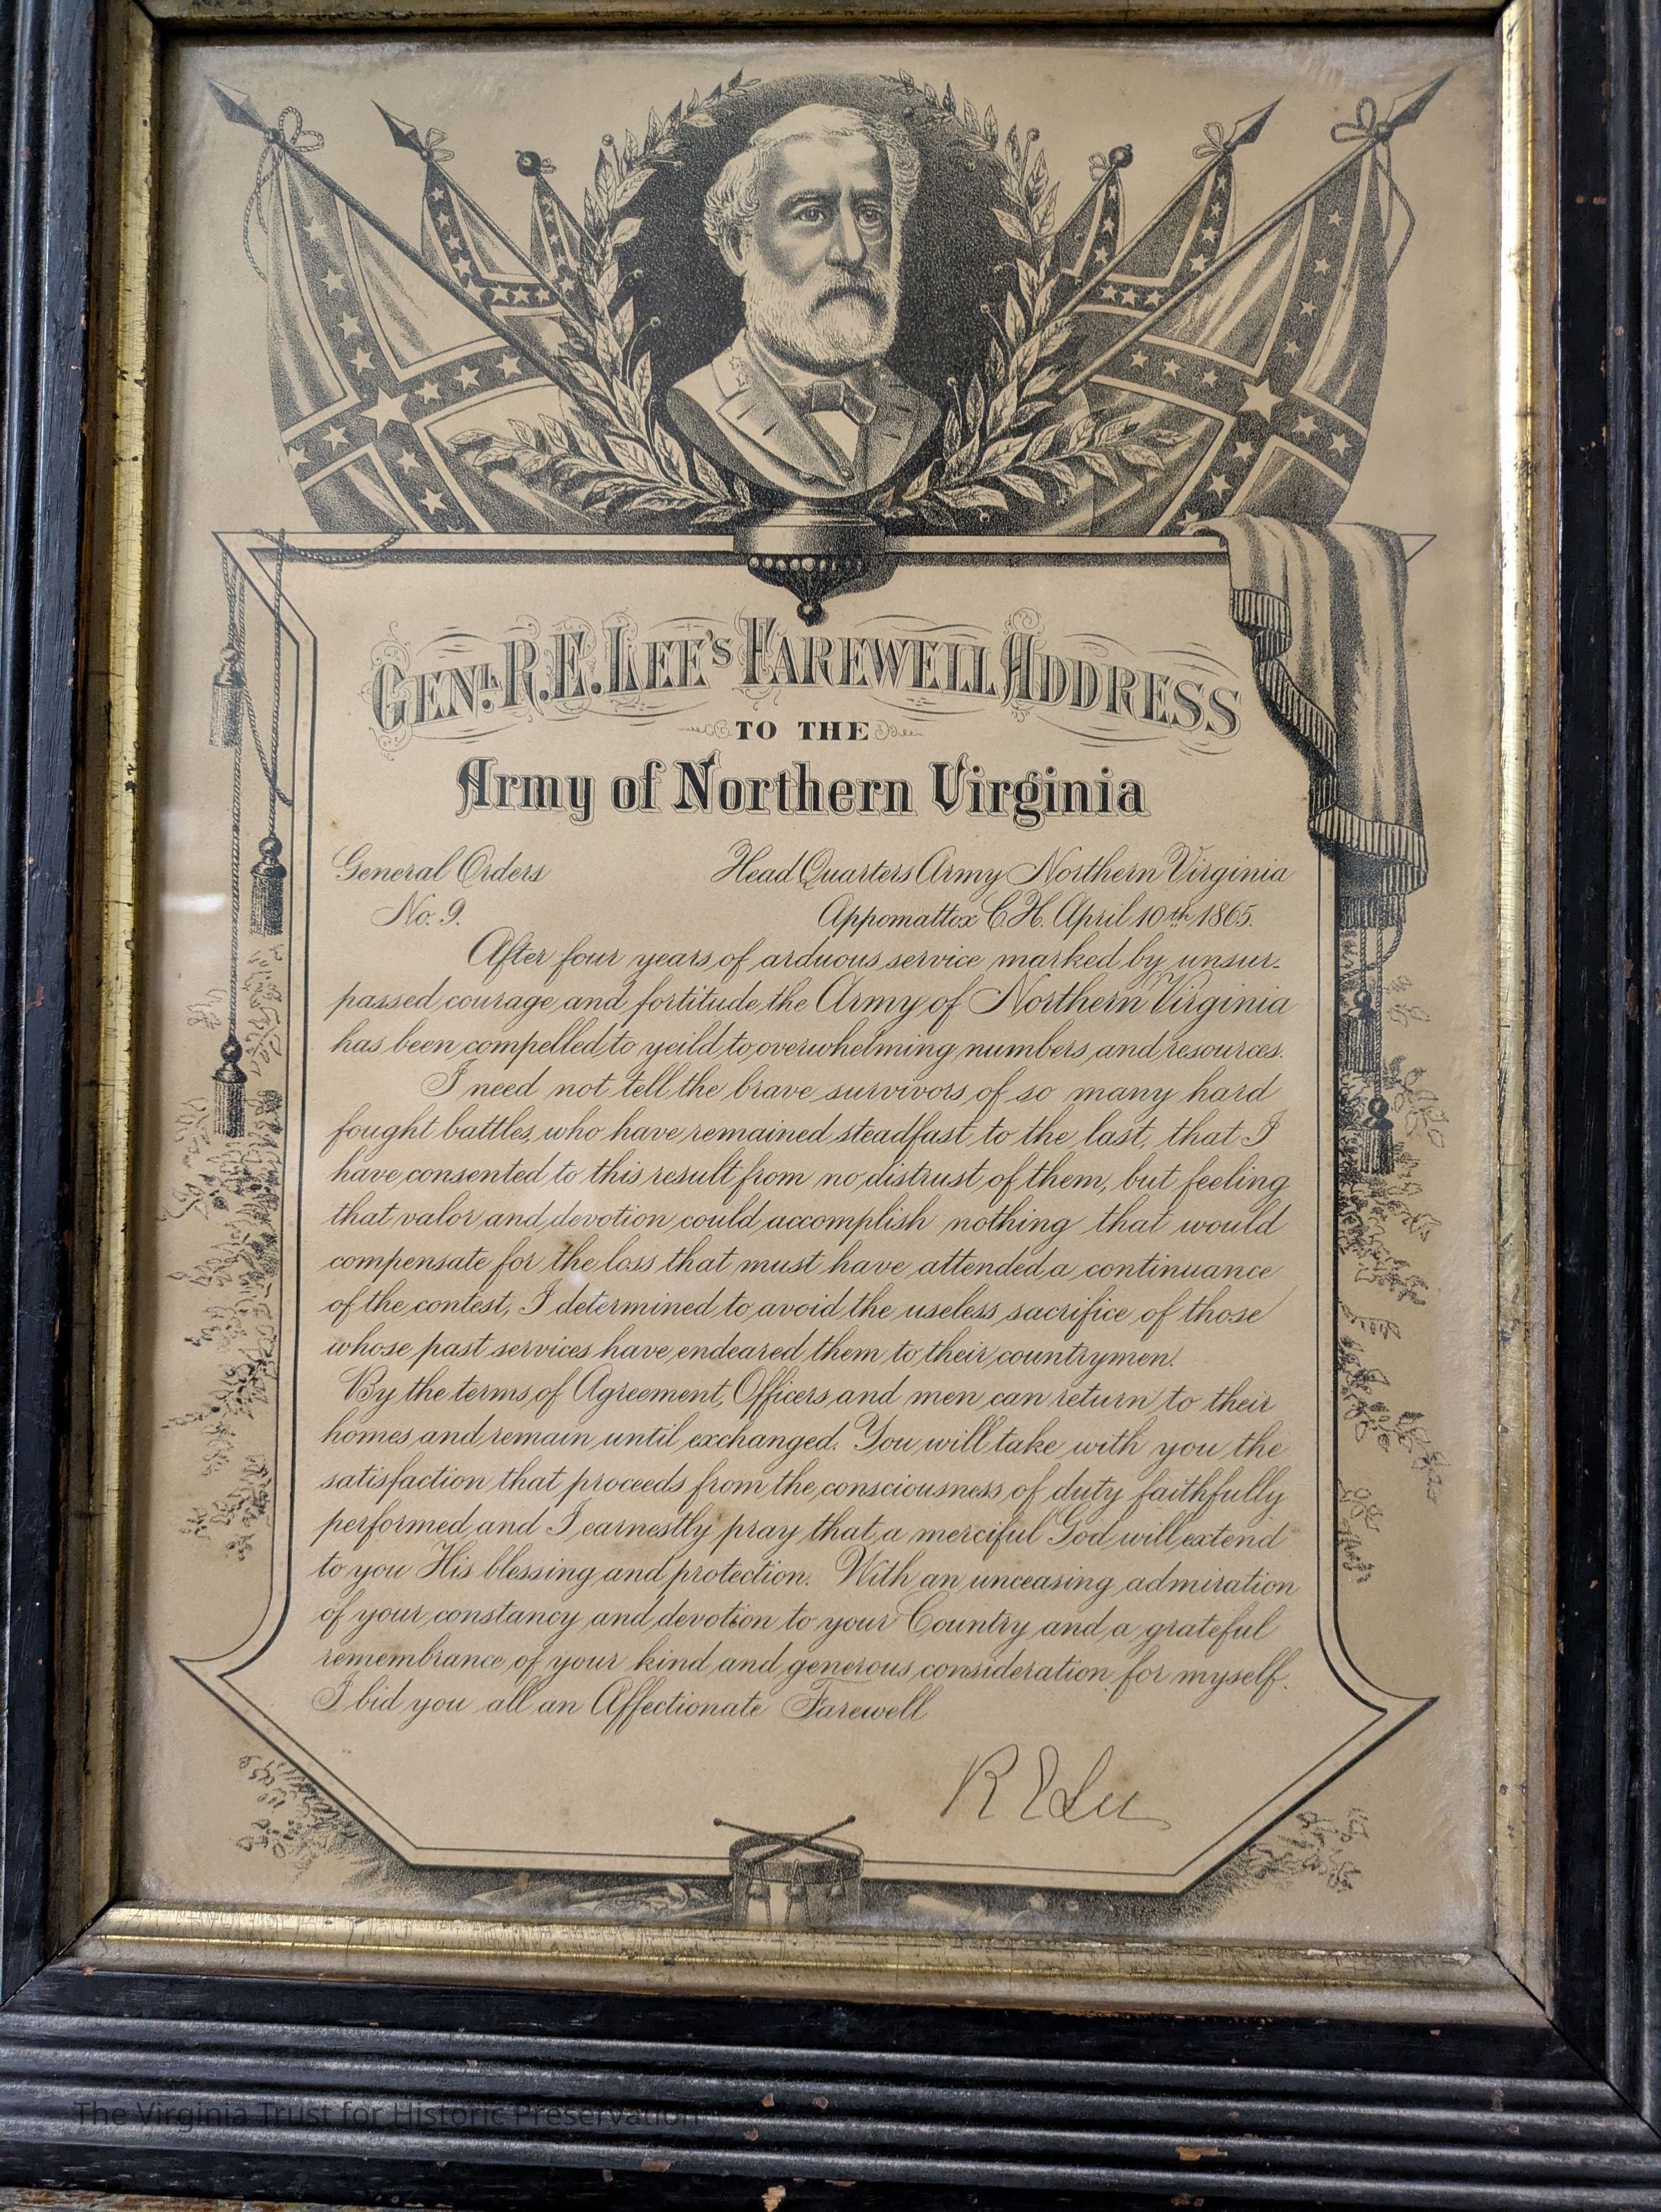 GENL. R.E. LEE'S FAREWELL ADDRESS
TO THE
Army of Northern Virginia
General Orders Head Quarters Army Northern Virginia
No. 9. Appomattox C.H. April 10th 1865.
After four years of arduous service marked by unsur-
passed courage and fortitude the Army of Northern Virginia
has been compelled to yeild to overwhelming numbers and resources.
I need not tell the brave survivors of so many hard
fought battles, who have remained steadfast to the last, that I
have consented to this result from no distrust of them, but feeling
that valor and devotion could accomplish nothing that would
compensate for the loss that must have attended a continuance
of the contest, I determined to avoid the useless sacrifice of those
whose past services have endeared them to their countrymen.
By the terms of Agreement, Officers and men can return to their
homes and remain until exchanged. You will take with you the
satisfaction that proceeds from the consciousness of duty faithfully
performed, and I earnestly pray that a merciful God will extend
to you His blessing and protection. With an unceasing admiration
of your constancy and devotion to your Country and a grateful
remembrance of your kind and generous consideration for myself.
I bid you all an Affectionate Farewell
R E Lee
The Virginia Trust for Historic Preservation